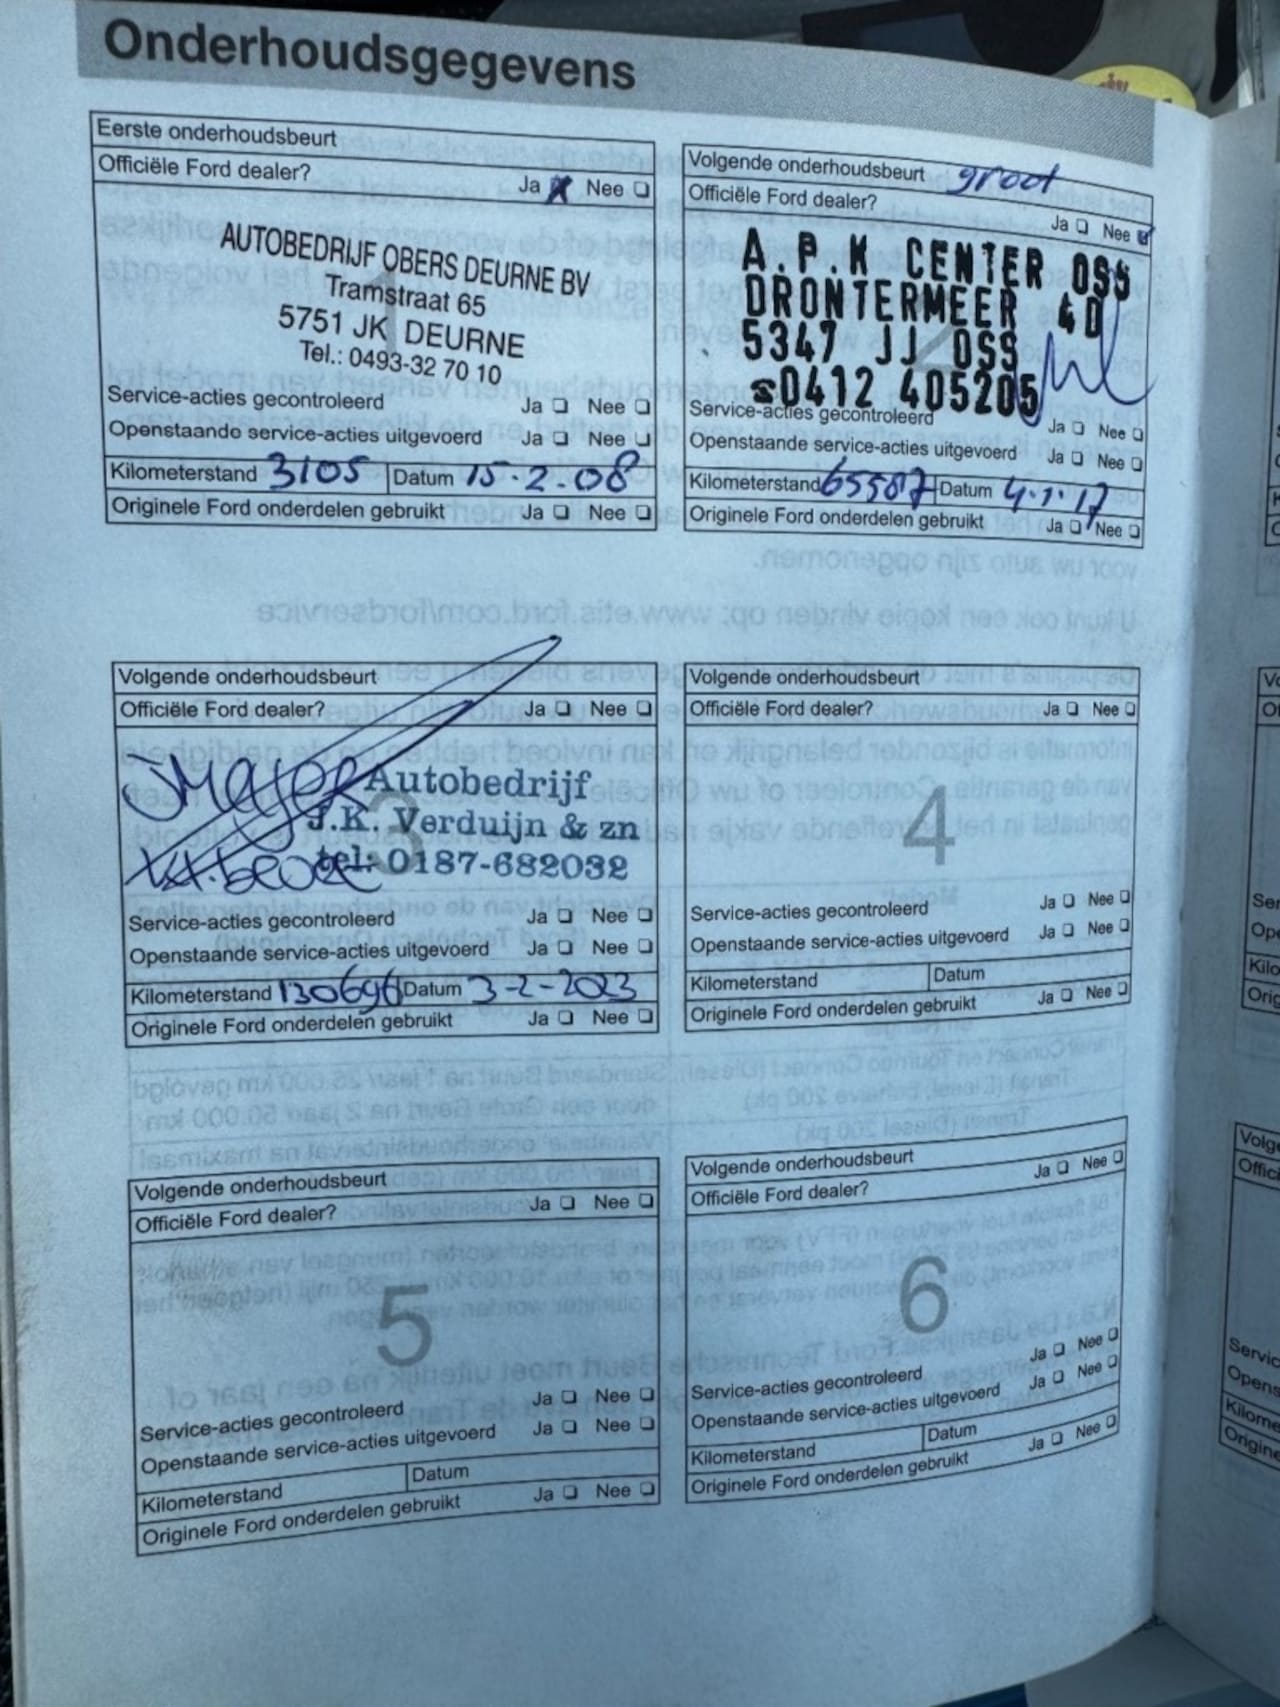 Onderhoudsgegevens
Eerste onderhoudsbeurt
Officiële Ford dealer?
Ja Nee
AUTOBEDRIJF OBERS DEURNE BV
Tramstraat 65
5751 JK DEURNE
Tel.: 0493-32 70 10
1
Service-acties gecontroleerd Ja Nee
Openstaande service-acties uitgevoerd Ja Nee
Kilometerstand 3105 Datum 15-2-08
Originele Ford onderdelen gebruikt Ja Nee
Volgende onderhoudsbeurt groot
Officiële Ford dealer?
Ja Nee
A.P.K CENTER OSS
DRONTERMEER 40
5347 JJ OSS
☎0412 405205
2
Service-acties gecontroleerd Ja Nee
Openstaande service-acties uitgevoerd Ja Nee
Kilometerstand 65587 Datum 4-1-17
Originele Ford onderdelen gebruikt Ja Nee
Volgende onderhoudsbeurt
Officiële Ford dealer? Ja Nee
Major
Autobedrijf
J.K. Verduijn & zn
tel: 0187-682032
3
Service-acties gecontroleerd Ja Nee
Openstaande service-acties uitgevoerd Ja Nee
Kilometerstand 130696 Datum 3-2-2023
Originele Ford onderdelen gebruikt Ja Nee
Volgende onderhoudsbeurt
Officiële Ford dealer? Ja Nee
4
Service-acties gecontroleerd Ja Nee
Openstaande service-acties uitgevoerd Ja Nee
Kilometerstand Datum
Originele Ford onderdelen gebruikt Ja Nee
Volgende onderhoudsbeurt
Officiële Ford dealer? Ja Nee
5
Service-acties gecontroleerd Ja Nee
Openstaande service-acties uitgevoerd Ja Nee
Kilometerstand Datum
Originele Ford onderdelen gebruikt Ja Nee
Volgende onderhoudsbeurt
Officiële Ford dealer? Ja Nee
6
Service-acties gecontroleerd Ja Nee
Openstaande service-acties uitgevoerd Ja Nee
Kilometerstand Datum
Originele Ford onderdelen gebruikt Ja Nee